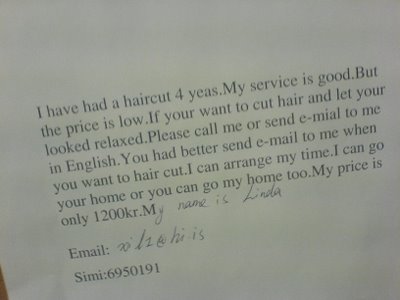 I have had a haircut 4 yeas.My service is good.But
the price is low.If your want to cut hair and let your
looked relaxed.Please call me or send e-mial to me
in English.You had better send e-mail to me when
you want to hair cut.I can arrange my time.I can go
your home or you can go my home too.My price is
only 1200kr.My name is Linda
Email: @hi.is
Simi:6950191